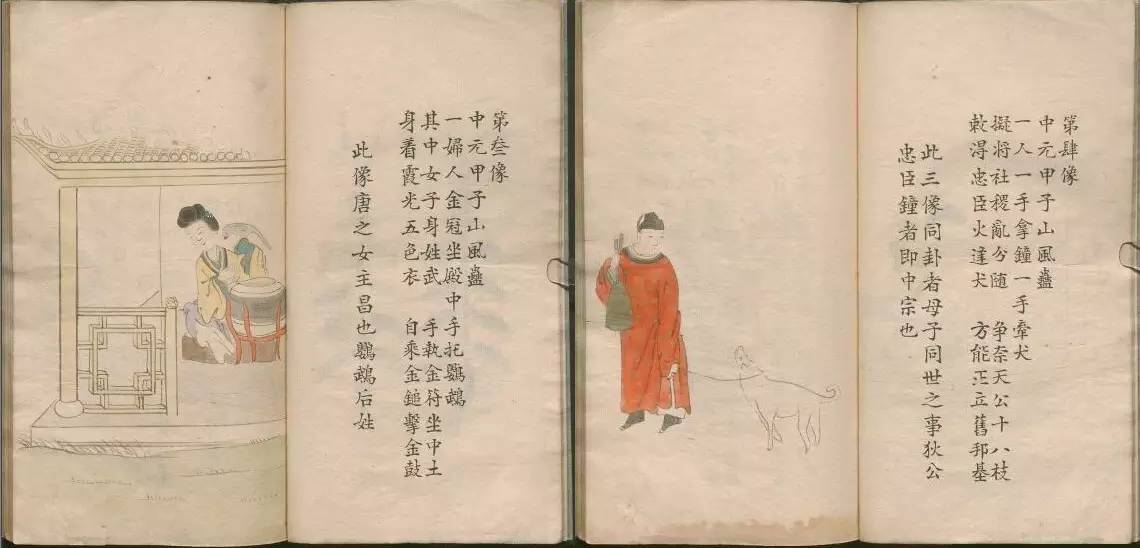 第叁像
中元甲子山風蠱
一婦人金冠坐殿中手托鸚鵡
其中女子身姓武 手執金符坐中土
身着霞光五色衣 自乘金鎚擊金鼓
此像唐之女主昌也鸚鵡后姓
第肆像
中元甲子山風蠱
一人一手拿鐘一手牽犬
擬將社稷亂分随 争奈天公十八枝
敕淂忠臣火達犬 方能正立舊邦基
此三像同卦者母子同世之事狄公
忠臣鐘者即中宗也